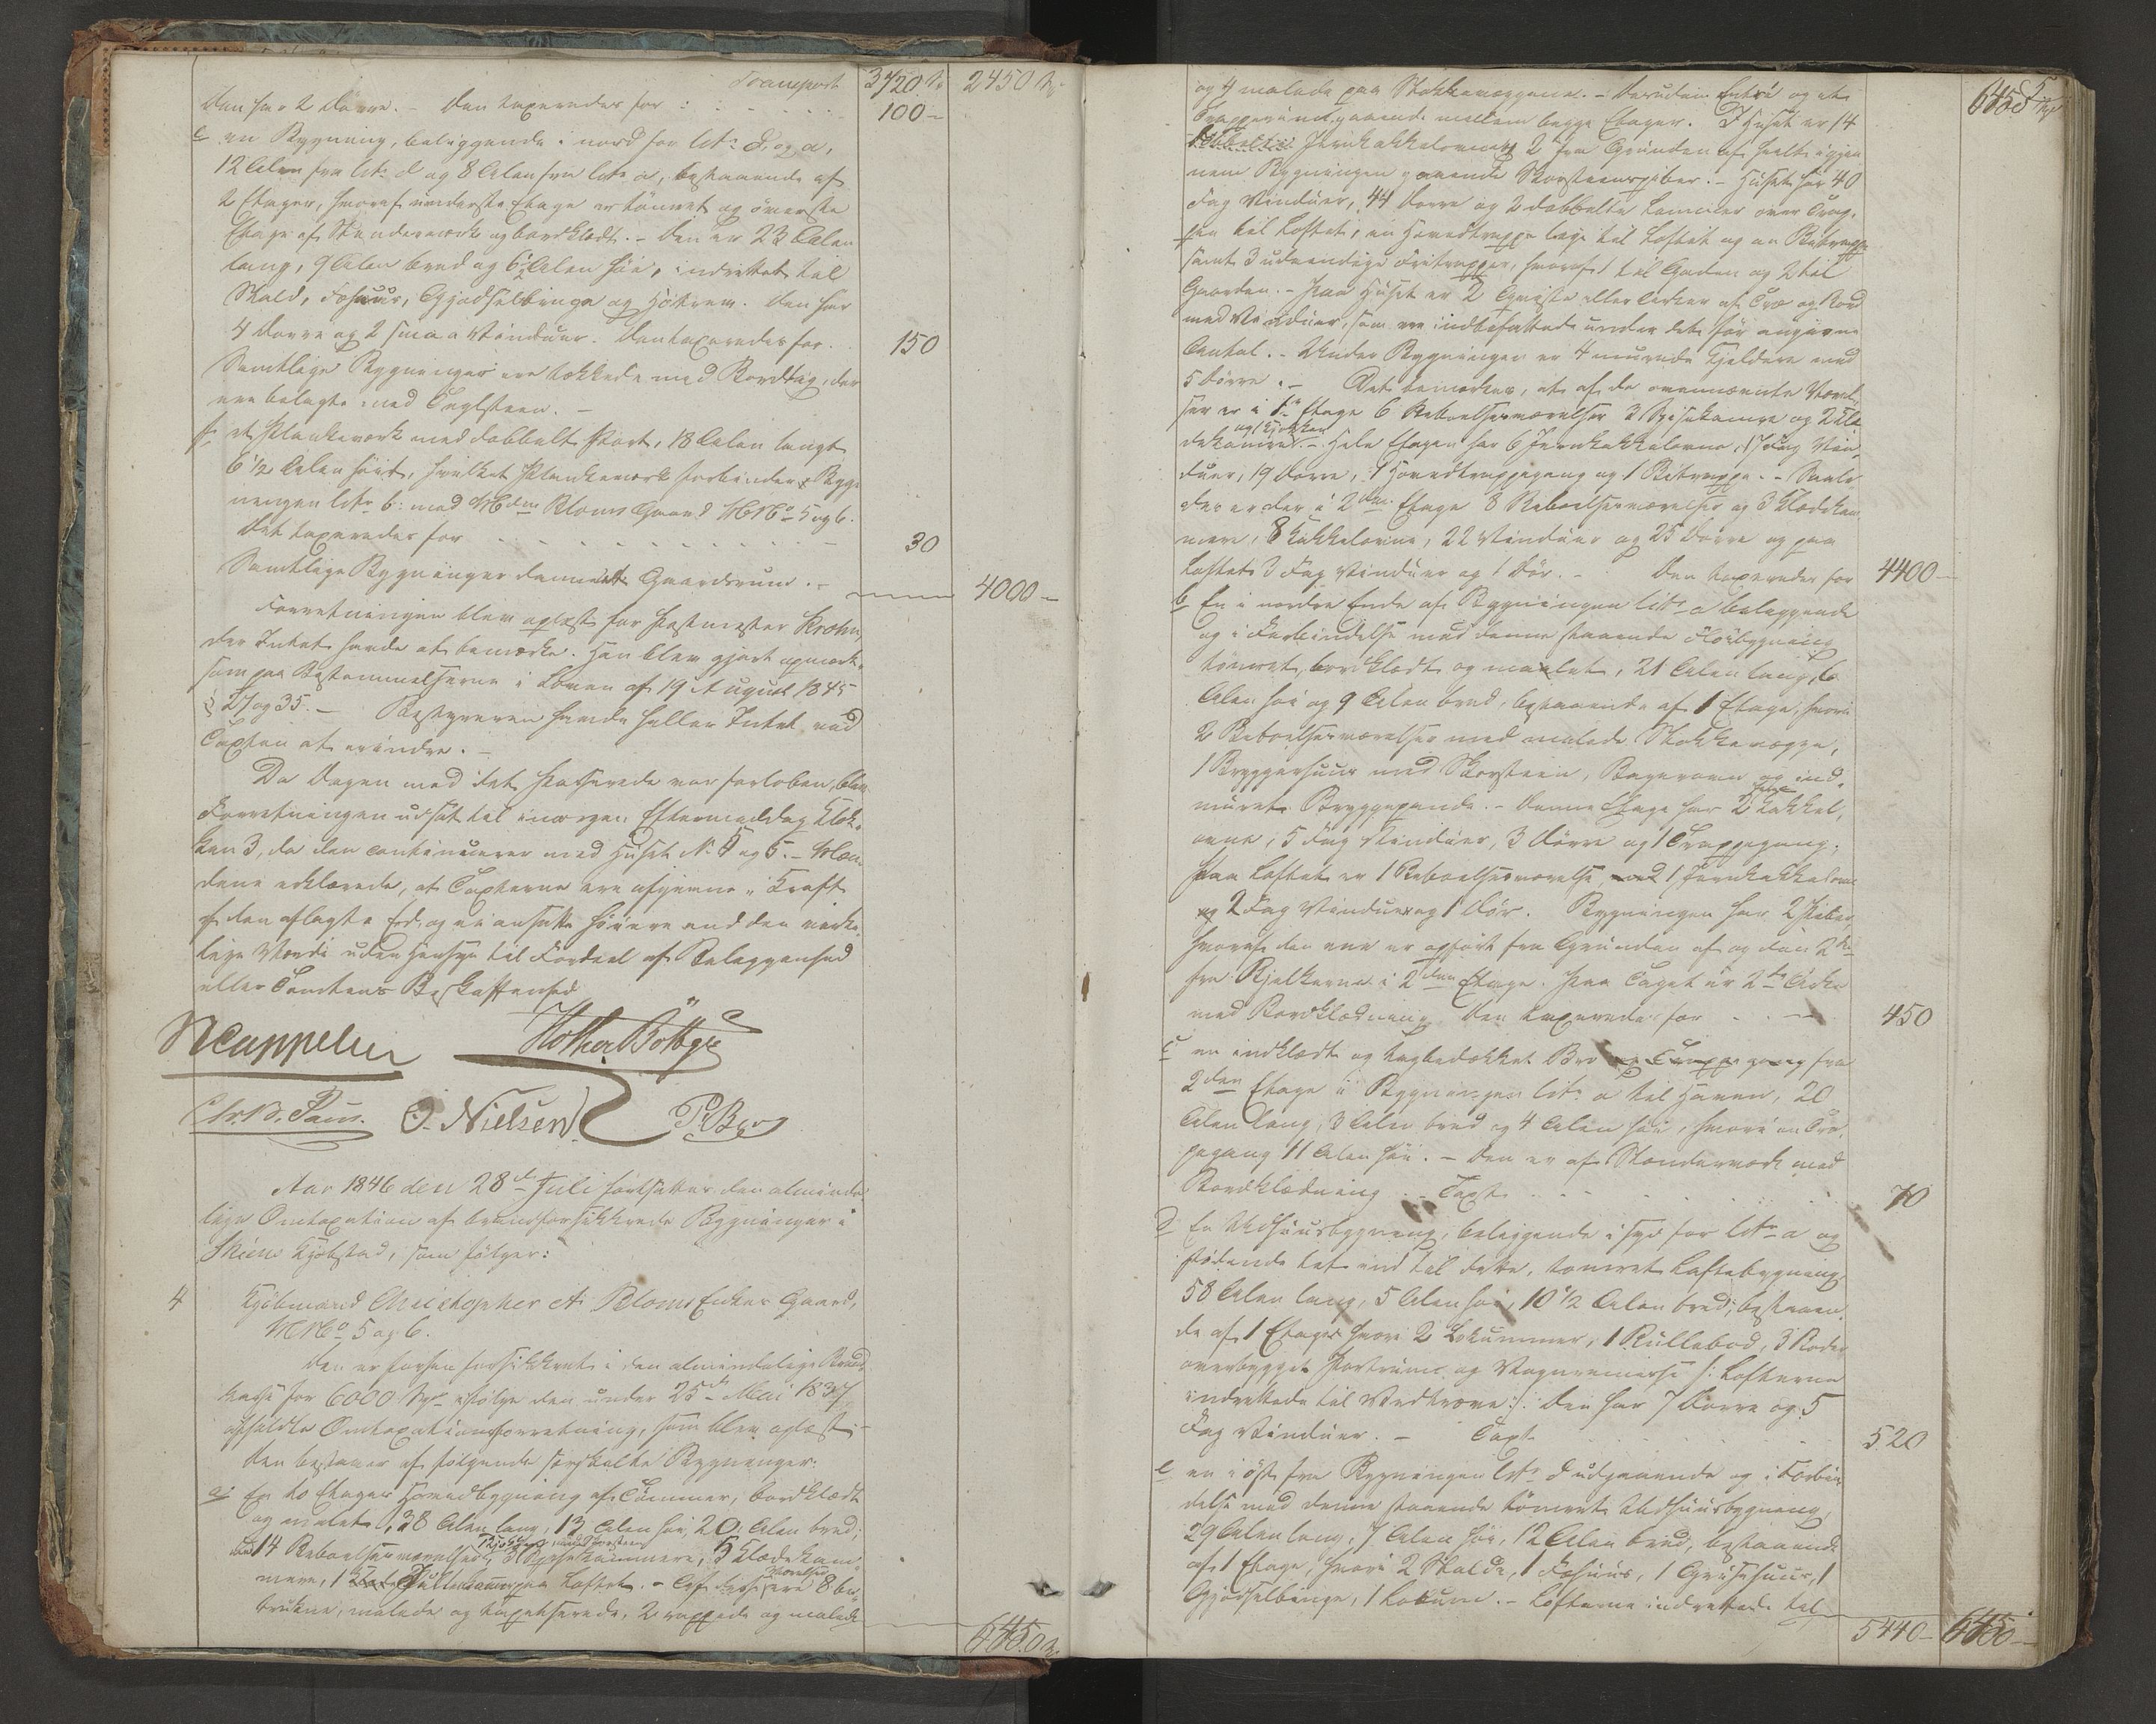 Transport 3720 2450
den har 2 Dørre. – Den taxeredes for : . . . 100 –
e en Bygning, beliggende i nord for litr. d, og a,
12 Alen fra litr. d og 8 Alen fra litr a, bestaaende af
2 Etager, hvoraf underste Etage er tømret og øverste
Etage af Stenderværk og bordklædt. – Den er 23 Alen
lang, 9 Alen bred og 6½ Alen høi, indrettet til
Stald, Fæhuus, Gjødselbinge og Hørum. Den har
4 Dørre og 2 smaa Vinduer. Den taxeredes for . 150
Samtlige Bygninger ere tækkede med Bordtag, der
ere belagte med Taglsteen. –
f, et Plankeværk med dobbelt Port, 18 Alen langt
6 1/2 Alen høit, hvilket Plankeværk forbinder Byg-
ningen litr b: med Bloms Gaard No 5 og 6.
Det taxeredes for . . . 30
Samtlige Bygninger danne et Gaardsrum. – 4000 –
Forretningen blev oplæst for Postmester Krohn,
der Intet havde at bemærke. Han blev gjort opmærk-
som paa Bestemmelserne i Loven af 19 August 1845
§ 27 og 35. – Bestyreren havde heller Intet ved
Taxten at erindre. –
Da Dagen med det Passerede var forløben, blev
Forretningen udsat til imorgen Eftermiddag Klok-
ken 3, da den continuerer med Huset No 5 og 6. – Mæn-
dene erklærede, at Taxterne ere afgivne i Kraft
af den aflagte Ed og ei ansatte høiere end den virke-
lige Værdi uden Hensyn til Fordeel af Beliggenhed
eller Tomtens Beskaffenhed
N Cappelen Hother Bøttger
Chr. B. Paus. O. Nielsen P. Berg
Aar 1846 den 28de Juli fortsattes den alminde-
lige Omtaxation af brandforsikkrede Bygninger i
Skiens Kjøbstad, som følger:
4 Kjøbmand Christopher A Bloms Enkes Gaard,
No 5 og 6.
Den er forhen forsikkret i den almindelige Brand-
kasse for 6000 ifølge den under 25de Mai 1837
afholdte Omtaxationsforretning, som blev oplæst –
Den bestaaer af følgende særskilte Bygninger:
a: En to Etages Hovedbygning af Tømmer, bordklædt
og malet, 38 Alen lang, 13 Alen høi, 20 Alen bred,
14 Beboelsesværelser, 3 Spisekammere, 5 Klædekam-
mere, 1 paa Loftet. – Af ere 8 be-
trukne, malede og tapetserede, 2 rappede og malede
6450
og 4 malede paa Stokkevæggene. – Desuden Entré og et 6450
Trapperum gaaende mellem begge Etager. I Huset er 14
Jernkakkelovne og 2 fra Grunden af heelt igjen-
nem Bygningen gaaende Skorsteenspiber. – Huset har 40
Fag Vinduer, 44 Dørre og 2 dobbelte Lemmer over Trap-
pen til Loftet, en Hovedtrappe lige til Loftet og en Bitrappe
samt 3 udvendige Fritrapper, hvoraf 1 til Gaden og 2 til
Gaarden. – Paa Huset er 2 Qviste eller Arker af Træ og Bord
med Vinduer, som ere indbefattede under det før angivne
Antal. – Under Bygningen er 4 murede Kjeldere med
5 Dørre. – Det bemærkes, at af de ovennævnte Værel-
ser er i 1ste Etage 6 Beboelsesværelser 3 Spisekamre og 2 Klæ-
dekamre og 1 Kjøkken. – Hele Etagen har 6 Jernkakkelovne, 17 Fag Vin-
duer, 19 Dørre, 1 Hovedtrappegang og 1 Bitrappe. – Saale-
des er der i 2den Etage 8 Beboelsesværelser og 3 Klædekam-
mere, 8 Kakkelovne, 22 Vinduer og 25 Dørre og paa
Loftet 3 Fag Vinduer og 1 Dør. – Den taxeredes for 4400 –
b En i nordre Ende af Bygningen litr a beliggende
og i Forbindelse med denne staaende Fløibygning
tømret, bordklædt og malet, 21 Alen lang, 6
Alen høi og 9 Alen bred, bestaaende af 1 Etage, hvori
2 Beboelsesværelser med malede Stokkevægge,
1 Bryggerhuus med Skorsteen, Bagerovn og ind-
muret Bryggepande. – Denne Etage har 2 Kakkel-
ovne, 5 Fag Vinduer, 3 Dørre og 1 Trappegang.
Paa Loftet er 1 Beboelsesværelse, med 1 Jernkakkelovn
og 2 Fag Vinduer og 1 Dør. Bygningen har 2 Piber,
hvoraf den ene er opført fra Grunden af og den 2den
fra Bjelkerne i 2den Etage. Paa Taget er 2de Arke
med Bordklædning. Den taxeredes for . . — 450
c en indklædt og tagbedækket Bro fra
2den Etage i Bygningen litr. a til Haven, 20
Alen lang, 3 Alen bred og 4 Alen høi, hvori en Trap-
pegang 11 Alen høi. – Den er af Stenderværk med
Bordklædning . – Taxt . . . 70
d En Udhuusbygning, beliggende i syd for litr a og
stødende tæt ind til dette, tømret Loftebygning
58 Alen lang, 5 Alen høi, 10 1/2 Alen bred, bestaaen-
de af 1 Etage hvori 2 Lokummer, 1 Rullebod, 3 Boder
overbygget Portrum og Vognremisse /: Lofterne
indrettede til Vedtræve :/. Den har 7 Dørre og 5
Fag Vinduer. – Taxt . . . 520
e en i øst fra Bygningen litr d udgaaende og i Forbin-
delse med denne staaende tømret Udhuusbygning,
29 Alen lang, 7 Alen høi, 12 Alen bred, bestaaende
af 1 Etage, hvori 2 Stalde, 1 Fæhuus, 1 Griisehuus, 1
Gjødselbinge, 1 Lokum. – Lofterne indrettede til
5440 – 6450